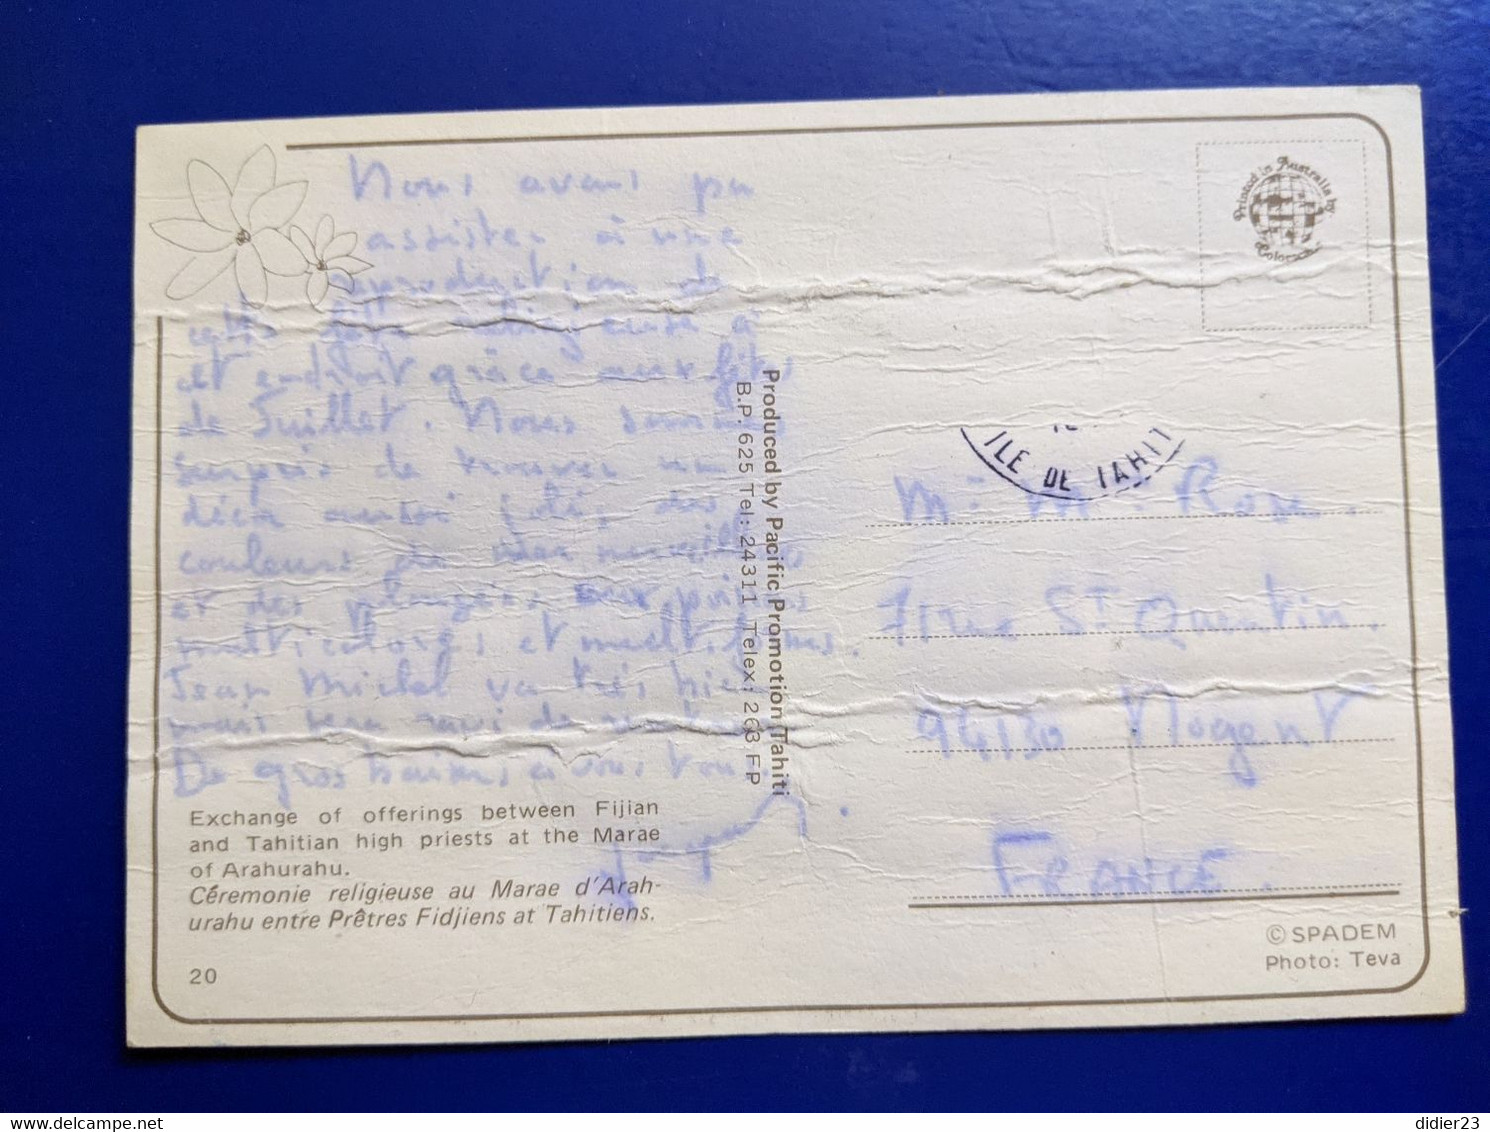 Nous avons pu
assister à une
reproduction de
cette fête religieuse à
cet endroit grâce aux fêtes
de Juillet. Nous sommes
surpris de trouver un
décor aussi joli, des
couleurs de mer merveilleuses
et des plongées aux poissons
multicolores et multiformes.
Jean Michel va très bien
mais sera ravi de rentrer
De gros baisers à vous tous.
Exchange of offerings between Fijian
and Tahitian high priests at the Marae
of Arahurahu.
Céremonie religieuse au Marae d'Arah-
urahu entre Prêtres Fidjiens at Tahitiens.
20
Produced by Pacific Promotion Tahiti
B.P. 625 Tel: 24311 Telex: 263 FP
Printed in Australia by
ILE DE TAHITI
Mr Me Rose.
71 rue St Quentin.
94130 Nogent
FRANCE.
© SPADEM
Photo: Teva
delcampe.net
didier23